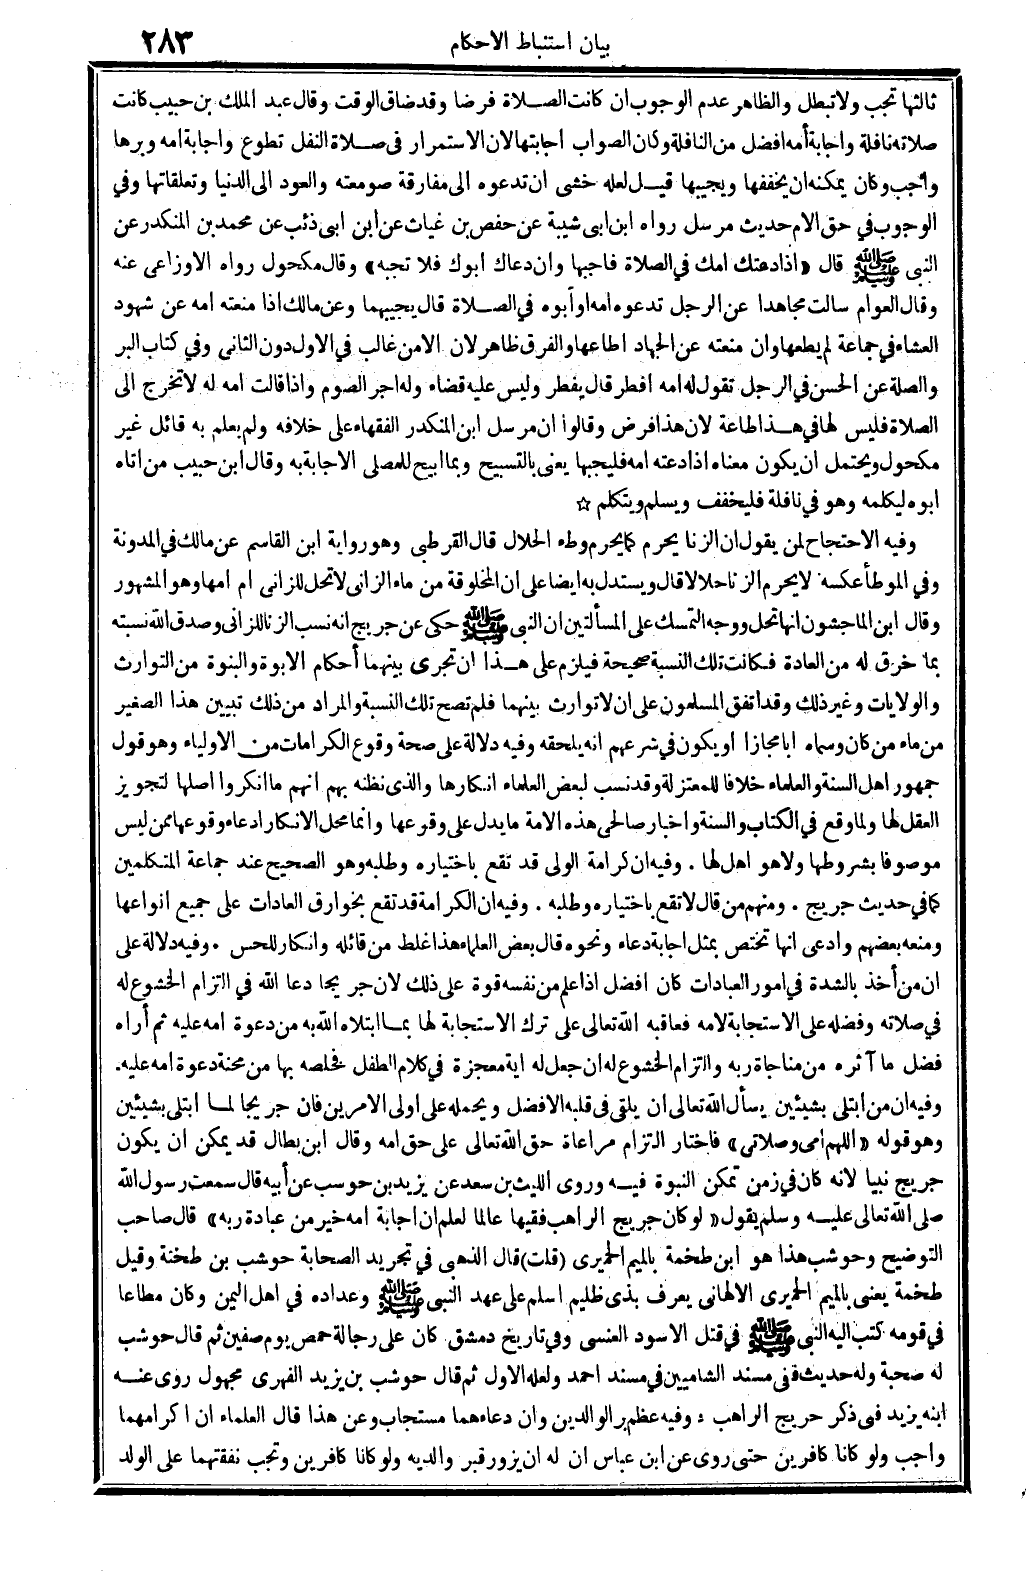 بيان استنباط الاحكام ٢٨٣
ثالثها تجب ولا تبطل والظاهر عدم الوجوب ان كانت الصلاة فرضا وقد ضاق الوقت وقال عبد الملك بن حبيب كانت
صلاته نافلة واجابة أمه افضل من النافلة وكان الصواب اجابتها لان الاستمرار في صلاة النفل تطوع واجابة امه وبرها
واجب وكان يمكنه ان يخففها ويجيبها قيل لعله خشى ان تدعوه الى مفارقة صومعته والعود الى الدنيا وتعلقاتها وفي
الوجوب في حق الام حديث مرسل رواه ابن ابى شيبة عن حفص بن غياث عن ابن ابى ذئب عن محمد بن المنكدر عن
النبى ﷺ قال «اذا دعتك امك في الصلاة فاجبها وان دعاك ابوك فلا تجبه» وقال مكحول رواه الاوزاعى عنه
وقال العوام سالت مجاهدا عن الرجل تدعوه امه او أبوه في الصلاة قال يجيبهما وعن مالك اذا منعته امه عن شهود
العشاء في جماعة لم يطعها وان منعته عن الجهاد اطاعها والفرق ظاهر لان الامن غالب في الاول دون الثانى وفي كتاب البر
والصلة عن الحسن في الرجل تقول له امه افطر قال يفطر وليس عليه قضاء وله اجر الصوم واذا قالت امه له لا تخرج الى
الصلاة فليس لها في هذا طاعة لان هذا فرض وقالوا ان مرسل ابن المنكدر الفقهاء على خلافه ولم يعلم به قائل غير
مكحول ويحتمل ان يكون معناه اذا دعته امه فليجبها يعنى بالتسبيح وبما ابيح للمصلى الاجابة به وقال ابن حبيب من اتاه
ابوه ليكلمه وهو في نافلة فليخفف ويسلم ويتكلم ☆
وفيه الاحتجاج لمن يقول ان الزنا يحرم كما يحرم وطء الحلال قال القرطبى وهو رواية ابن القاسم عن مالك في المدونة
وفي الموطأ عكسه لا يحرم الزنا حلالا قال ويستدل به ايضا على ان المخلوقة من ماء الزانى لا تحل للزانى ام امها وهو المشهور
وقال ابن الماجشون انها تحل ووجه التمسك على المسألتين ان النبى ﷺ حكى عن جريج انه نسب الزنا للزانى وصدق الله نسبته
بما خرق له من العادة فكانت تلك النسبة صحيحة فيلزم على هذا ان تجرى بينهما أحكام الابوة والبنوة من التوارث
والولايات وغير ذلك وقد اتفق المسلمون على ان لا توارث بينهما فلم تصح تلك النسبة والمراد من ذلك تبيين هذا الصغير
من ماء من كان وسماه ابا مجازا او يكون في شرعهم انه يلحقه وفيه دلالة على صحة وقوع الكرامات من الاولياء وهو قول
جمهور اهل السنة والعلماء خلافا للمعتزلة وقد نسب لبعض العلماء انكارها والذى نظنه بهم انهم ما انكروا اصلها لتجويز
العقل لها ولما وقع في الكتاب والسنة واخبار صالحى هذه الامة ما يدل على وقوعها وانما محل الانكار ادعاء وقوعها ممن ليس
موصوفا بشروطها ولا هو اهل لها . وفيه ان كرامة الولى قد تقع باختياره وطلبه وهو الصحيح عند جماعة المتكلمين
كما في حديث جريج . ومنهم من قال لا تقع باختياره وطلبه . وفيه ان الكرامة قد تقع بخوارق العادات على جميع انواعها
ومنعه بعضهم وادعى انها تختص بمثل اجابة دعاء ونحوه قال بعض العلماء هذا غلط من قائله وانكار للحس . وفيه دلالة على
ان من أخذ بالشدة في امور العبادات كان افضل اذا علم من نفسه قوة على ذلك لان جريجا دعا الله في التزام الخشوع له
في صلاته وفضله على الاستجابة لامه فعاقبه الله تعالى على ترك الاستجابة لها بما ابتلاه الله به من دعوة امه عليه ثم أراه
فضل ما آثره من مناجاة ربه والتزام الخشوع له ان جعل له اية معجزة في كلام الطفل فخلصه بها من محنة دعوة امه عليه.
وفيه ان من ابتلى بشيئين يسأل الله تعالى ان يلقى في قلبه الافضل ويحمله على اولى الامرين فان جريجا لما ابتلى بشيئين
وهو قوله «اللهم امى وصلاتى» فاختار التزام مراعاة حق الله تعالى على حق امه وقال ابن بطال قد يمكن ان يكون
جريج نبيا لانه كان في زمن تمكن النبوة فيه وروى الليث بن سعد عن يزيد بن حوسب عن أبيه قال سمعت رسول الله
صلى الله تعالى عليه وسلم يقول «لو كان جريج الراهب فقيها عالما لعلم ان اجابة امه خير من عبادة ربه» قال صاحب
التوضيح وحوشب هذا هو ابن طخمة بالميم الحميرى (قلت) قال الذهبى في تجريد الصحابة حوشب بن طخنة وقيل
طخمة يعنى بالميم الحميرى الالهانى يعرف بذى ظليم اسلم على عهد النبى ﷺ وعداده في اهل اليمن وكان مطاعا
في قومه كتب اليه النبى ﷺ في قتل الاسود العنسى وفي تاريخ دمشق كان على رجالة حمص يوم صفين ثم قال حوشب
له صحبة وله حديث في مسند الشاميين في مسند احمد ولعله الاول ثم قال حوشب بن يزيد الفهرى مجهول روى عنه
ابنه يزيد في ذكر جريج الراهب : وفيه عظم بر الوالدين وان دعاءهما مستجاب وعن هذا قال العلماء ان اكرامهما
واجب ولو كانا كافرين حتى روى عن ابن عباس ان له ان يزور قبر والديه ولو كانا كافرين وتجب نفقتهما على الولد